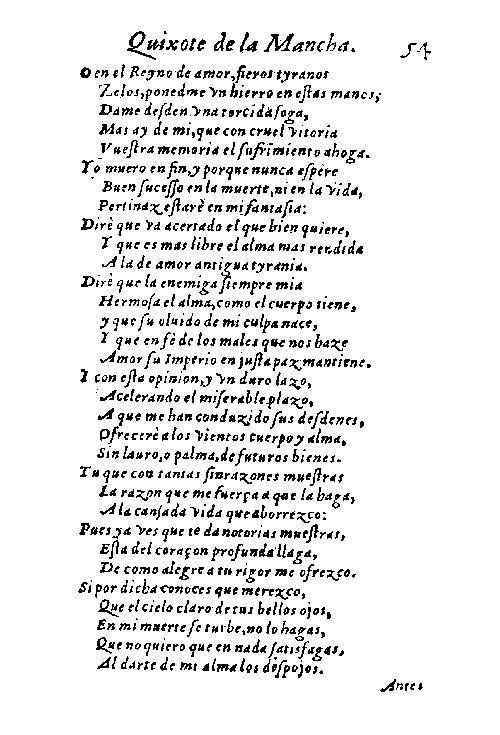 Quixote de la Mancha. 54
O en el Reyno de amor, fieros tyranos
Zelos, ponedme vn hierro en estas manos;
Dame desden vna torcida soga,
Mas ay de mi, que con cruel vitoria
Vuestra memoria el sufrimiento ahoga.
Yo muero en fin, y porque nunca espère
Buen sucesso en la muerte, ni en la vida,
Pertinaz estarè en mi fantasia:
Dirè que va acertado el que bien quiere,
Y que es mas libre el alma mas rendida
A la de amor antigua tyrania.
Dirè que la enemiga siempre mia
Hermosa el alma, como el cuerpo tiene,
y que su oluido de mi culpa nace,
Y que en fè de los males que nos haze
Amor su Imperio en justa paz mantiene.
Y con esta opinion, y vn duro lazo,
Acelerando el miserable plazo,
A que me han conduzido sus desdenes,
Ofrecerè a los vientos cuerpo y alma,
Sin lauro, o palma, de futuros bienes.
Tu que con tantas sinrazones muestras
La razon que me fuerça a que la haga,
A la cansada vida que aborrezco:
Pues ya ves que te da notorias muestras,
Esta del coraçon profunda llaga,
De como alegre a tu rigor me ofrezco.
Si por dicha conoces que merezco,
Que el cielo claro de tus bellos ojos,
En mi muerte se turbe, no lo hagas,
Que no quiero que en nada satisfagas,
Al darte de mi alma los despojos.
Antes